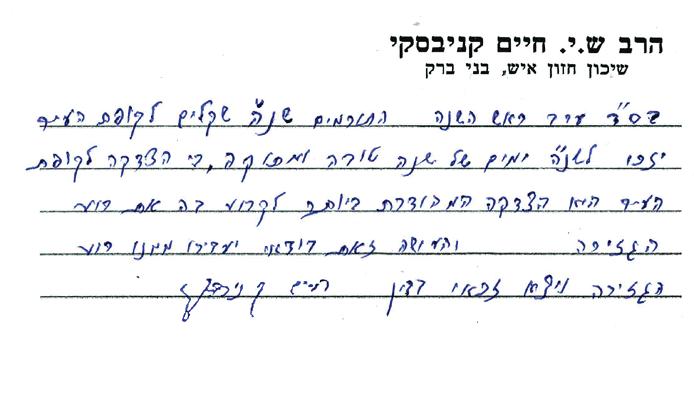 הרב ש.י. חיים קניבסקי
שיכון חזון איש, בני ברק
בס"ד ערב ראש השנה התורמים שנ"ה שקלים לקופת העיר
יזכו לשנ"ה ימים של שנה טובה ומתוקה, כי הצדקה לקופת
העיר היא הצדקה המהודרת ביותר לקרוע בה את רוע
הגזירה והעושה זאת בודאי יעבירו ממנו רוע
הגזירה ויצא זכאי בדין חיים קניבסקי